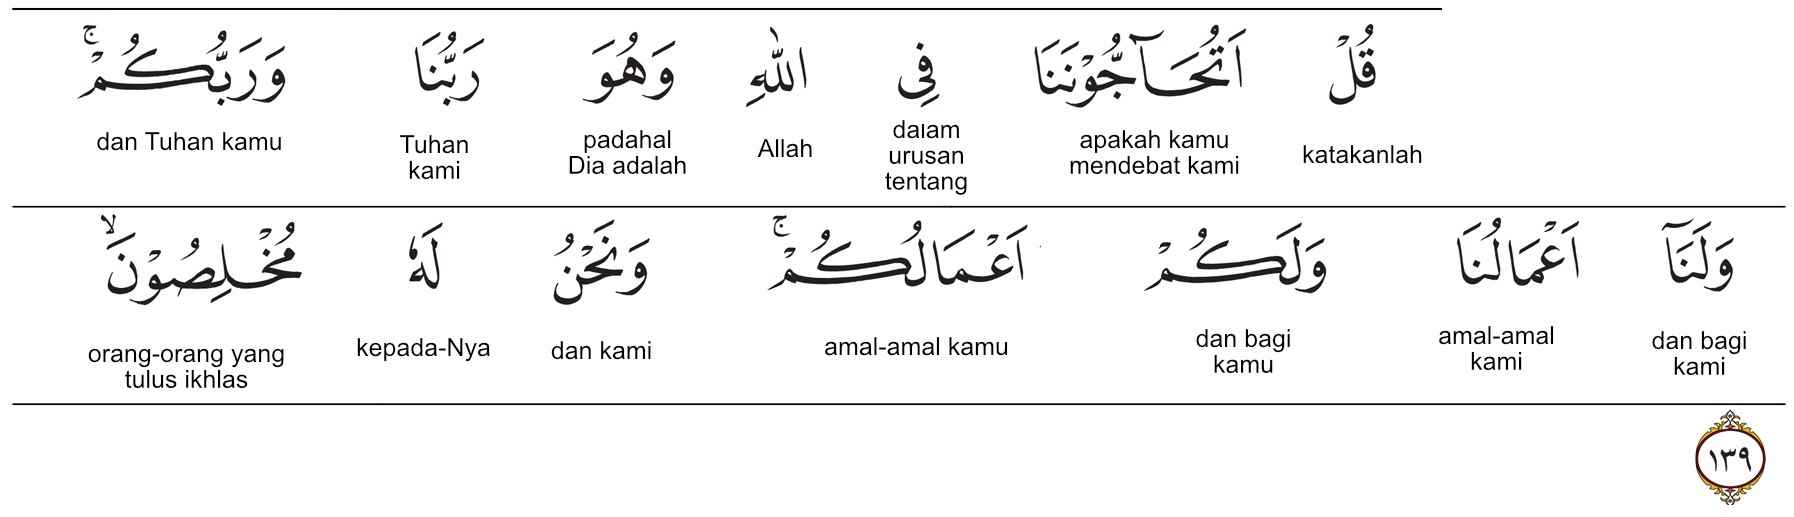 قُلْ اَتُحَاۤجُّوْنَنَا فِى اللّٰهِ وَهُوَ رَبُّنَا وَرَبُّكُمْۚ
katakanlah apakah kamu mendebat kami dalam urusan tentang Allah padahal Dia adalah Tuhan kami dan Tuhan kamu
وَلَنَآ اَعْمَالُنَا وَلَكُمْ اَعْمَالُكُمْۚ وَنَحْنُ لَهٗ مُخْلِصُوْنَۙ
dan bagi kami amal-amal kami dan bagi kamu amal-amal kamu dan kami kepada-Nya orang-orang yang tulus ikhlas
١٣٩